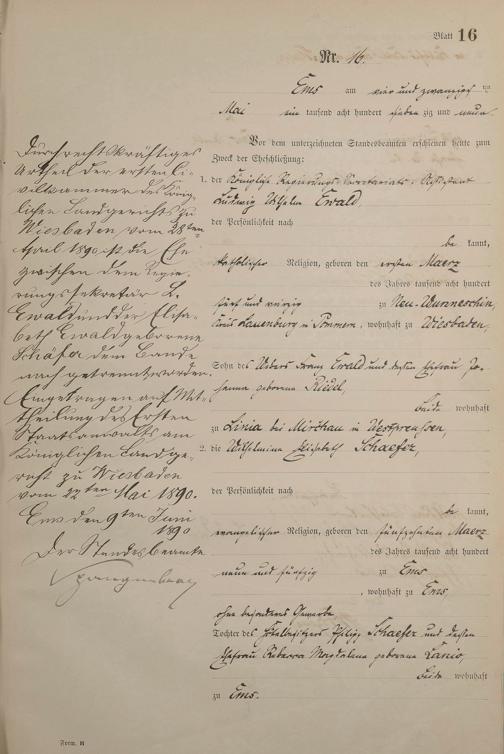 Blatt 16
Nr. 16.
Ems am vier und zwanzigsten
Mai ein tausend acht hundert sieben zig und neun.
Vor dem unterzeichneten Standesbeamten erschienen heute zum
Zweck der Eheschließung:
1. der Königliche Regierungs-Secretariats-Assistent
Ludwig Wilhelm Ewald,
der Persönlichkeit nach
be kannt,
katholischer Religion, geboren den ersten Maerz
des Jahres tausend acht hundert
fünf und vierzig zu Neu-
Kreis Lauenburg in Pommern, wohnhaft zu Wiesbaden,
Sohn des Franz Ewald und dessen Ehefrau, Jo-
hanna geborene Riedel,
beide wohnhaft
zu Linia bei Mirchau in Westpreussen,
2. die Wilhelmina Elisabeth Schaefer,
der Persönlichkeit nach
be kannt,
evangelischer Religion, geboren den fünfzehnten Maerz
des Jahres tausend acht hundert
neun und fünfzig zu Ems
, wohnhaft zu Ems
ohne besonderes Gewerbe
Tochter des Hotelbesitzers Philipp Schaefer und dessen
Ehefrau Rebecca Magdalena geborene Lanio,
beide wohnhaft
zu Ems.
Durch rechtskräftiges
Urtheil der ersten Ci-
vilkammer des König-
lichen Landgerichts zu
Wiesbaden vom 28ten
April 1890 ist die Ehe
zwischen dem Regie-
rungssekretär L.
Ewald und der Elisa-
beth Ewald geborene
Schäfer dem Bande
nach getrennt worden.
Eingetragen auf Mit-
theilung des Ersten
Staatsanwalts am
Königlichen Landge-
richt zu Wiesbaden
vom 22ten Mai 1890.
Ems den 9ten Juni
1890
Der Standesbeamte
Spangenberg
Form. H